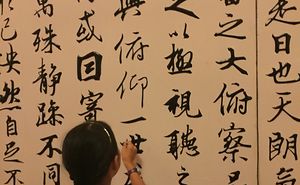 是日也天朗氣
宙之大俯察品
以極視聽之
與俯仰一世
或因寄
萬殊靜躁不同
於己快然自足不